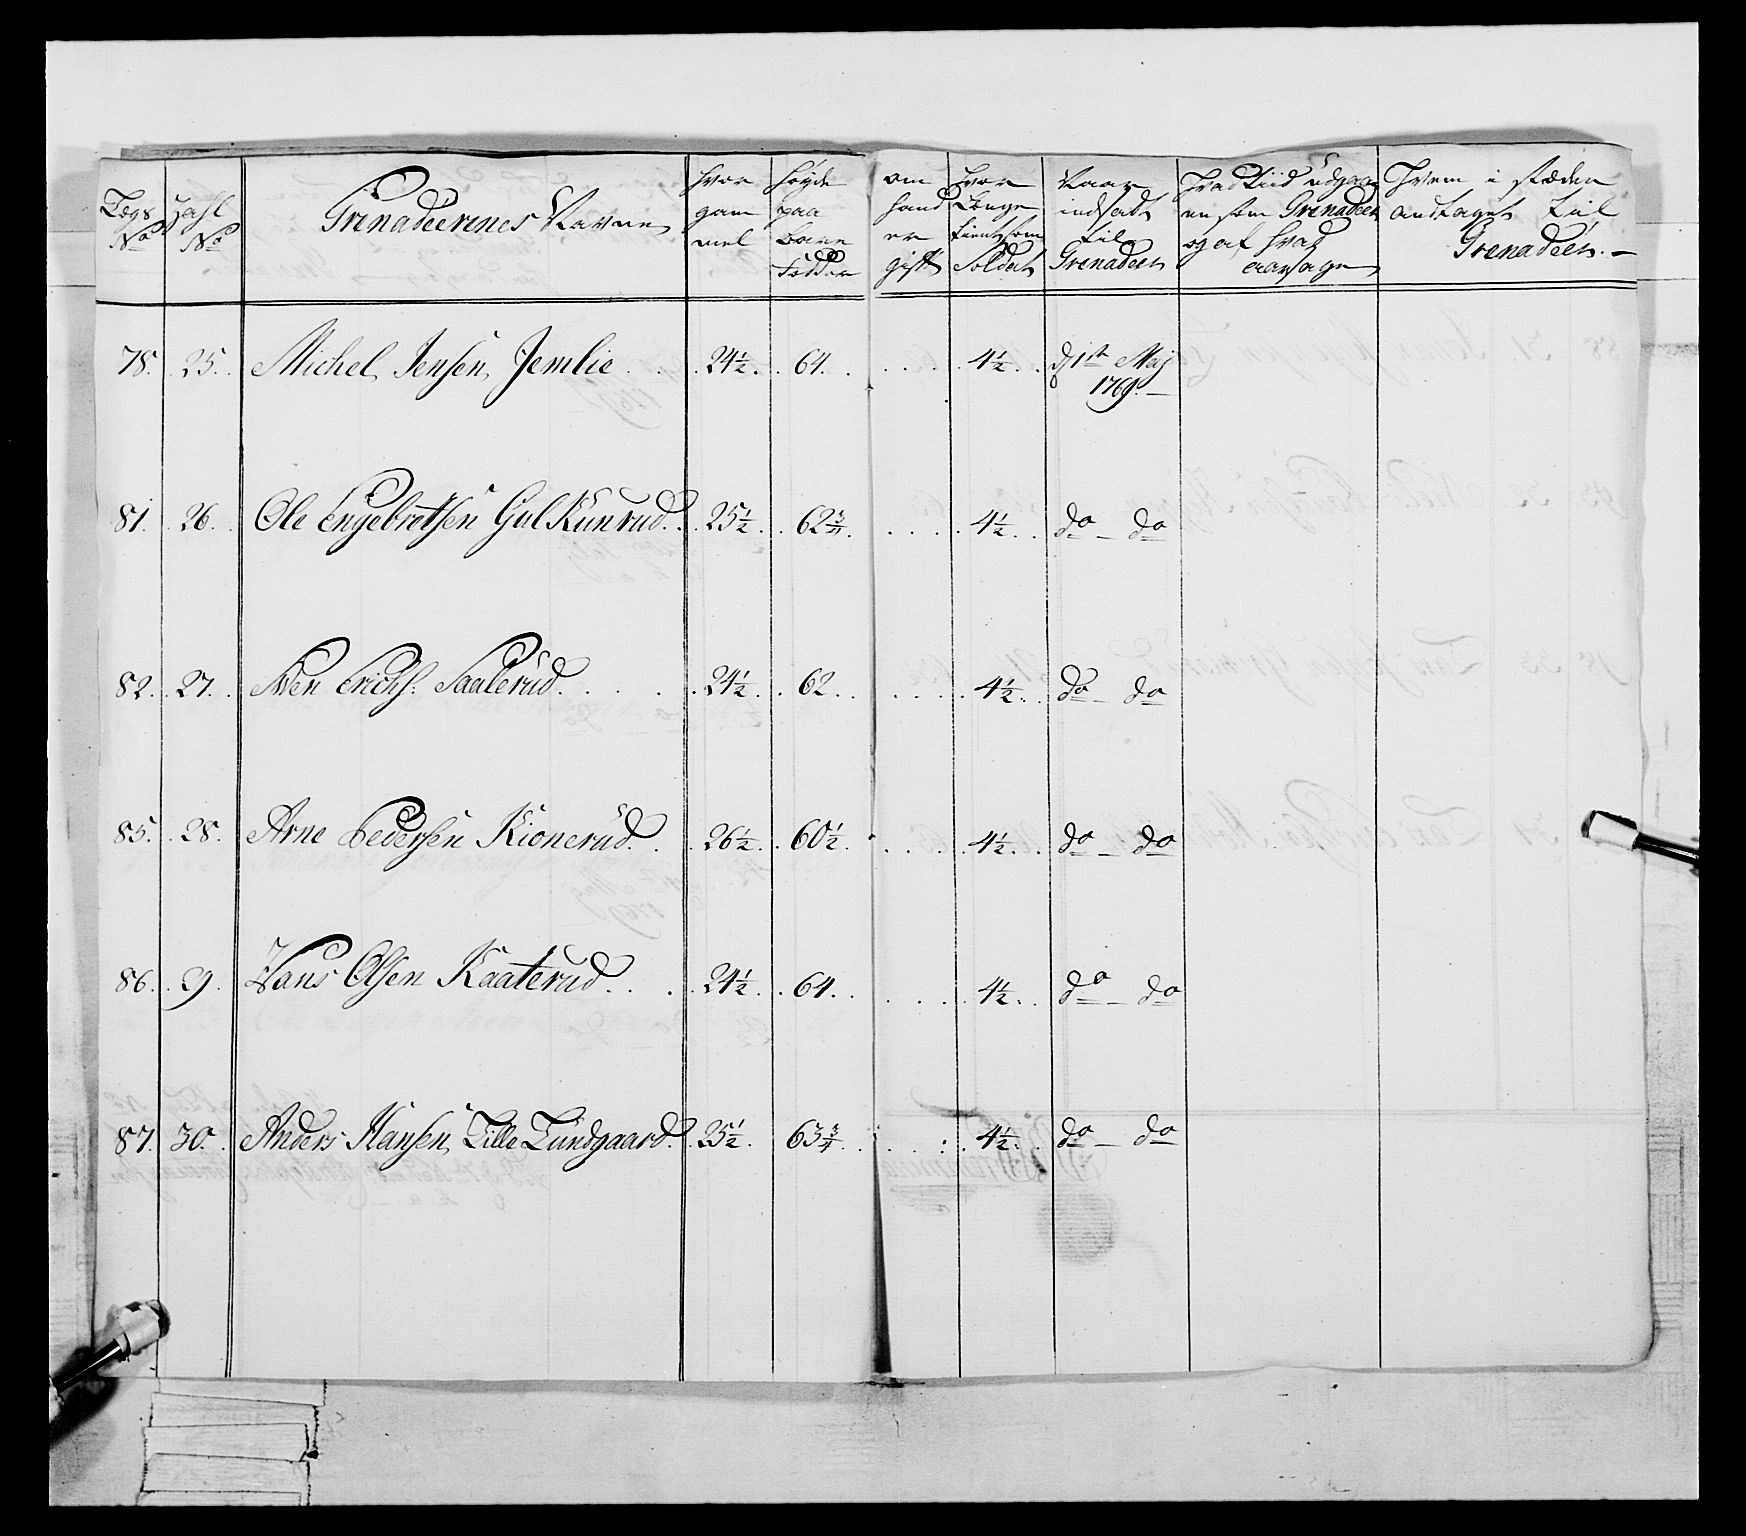 Lægs No
Zahl No
Grenadeerenes Navne
hvor gam mel
høyde paa bare Fødder
om hand er gift
hvor Længe tient som Soldat
Naar indsadt til Grenadeer
hvad tiid udgaaen som Grenadeer og af hvad aarsage
hvem i stæden andtaget til Grenadeer. –
78. 25. Michel Jensen Jemlie . . 24½. 64. . . . . . 4½. . d 1st Maj
1769. –
81. 26. Ole Engebretsen Gulkunrud. . 25½. . 62¾. . . . . 4½. . do – do
82. 27. Sven Erichs. Saaterud. . . . . 24½. . 62. . . . . . 4½. . do – do
85. 28. Arne Pedersen Kionerud. . . 26½. . 60½. . . . . 4½. . do – do
86. 29. Hans Olsen Kaaterud. . . . 24½. . 64. . . . . . 4½. . do – do
87. 30. Anders Hansen Lille Lundgaard. . 25½. 63¾. . . . . 4½. . do – do